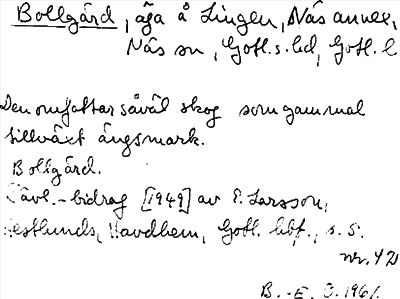 Bollgård, äga å Lingen, Näs annex,
Näs sn, Gotl. s. hd, Gotl. l
Den omfattar såväl skog som gammal
tillväxt ängsmark.
Bollgård.
Tävl.-bidrag [1949] av E. Larsson,
Hestlunds, Havdhem, Gotl. hbf., s. 5.
nr. 42
B.-E. O. 1961.